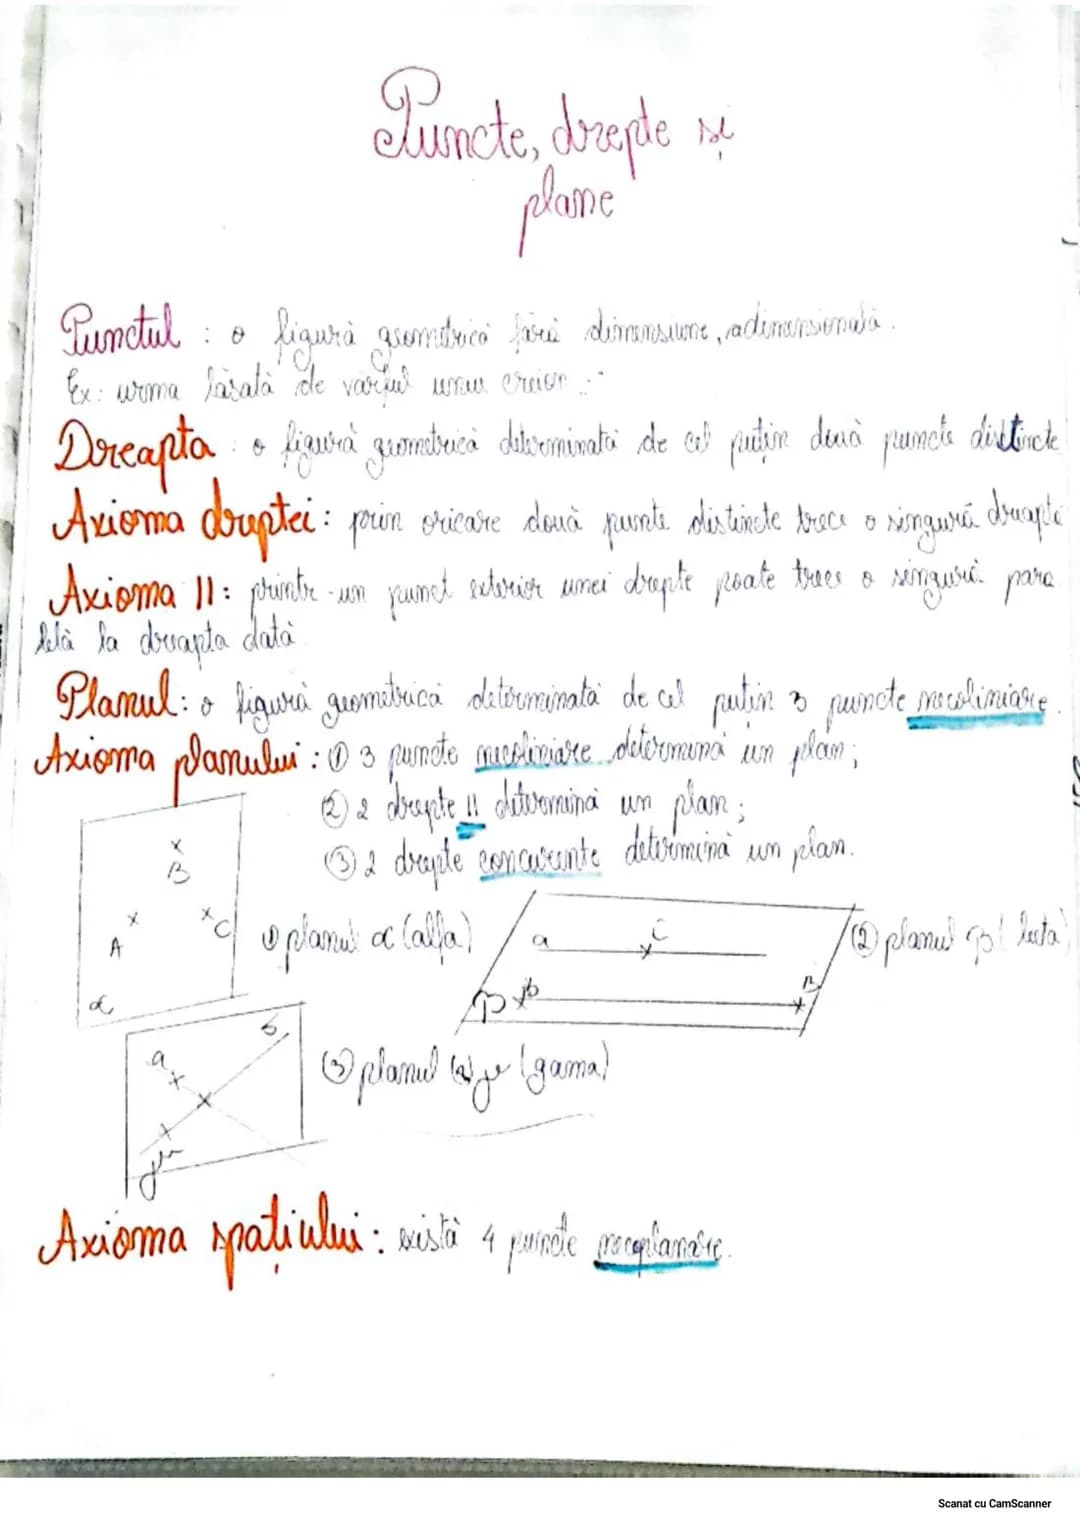 Puncte, drepte și
plane
Punctul : o figură geometrică fără dimensiune, adimensională.
Ex: urma lăsată de vârful unui creion .
Dreapta : o figură geometrică determinată de cel puțin două puncte distincte
Axioma dreptei : prin oricare două punte distincte trece o singură dreaptă
Axioma II : printr-un punct exterior unei drepte poate trece o singură para
lelă la dreapta dată
Planul : o figură geometrică determinată de cel puțin 3 puncte necoliniare.
Axioma planului : ① 3 puncte necoliniare determină un plan ;
② 2 drepte || determină un plan ;
③ 2 drepte concurente determină un plan.
B
A
C
α
① planul α (alfa)
a
C
b
B
② planul β ( beta)
a
③ planul (gama)
Axioma spațiului : există 4 puncte necoplanare.
Scanat cu CamScanner